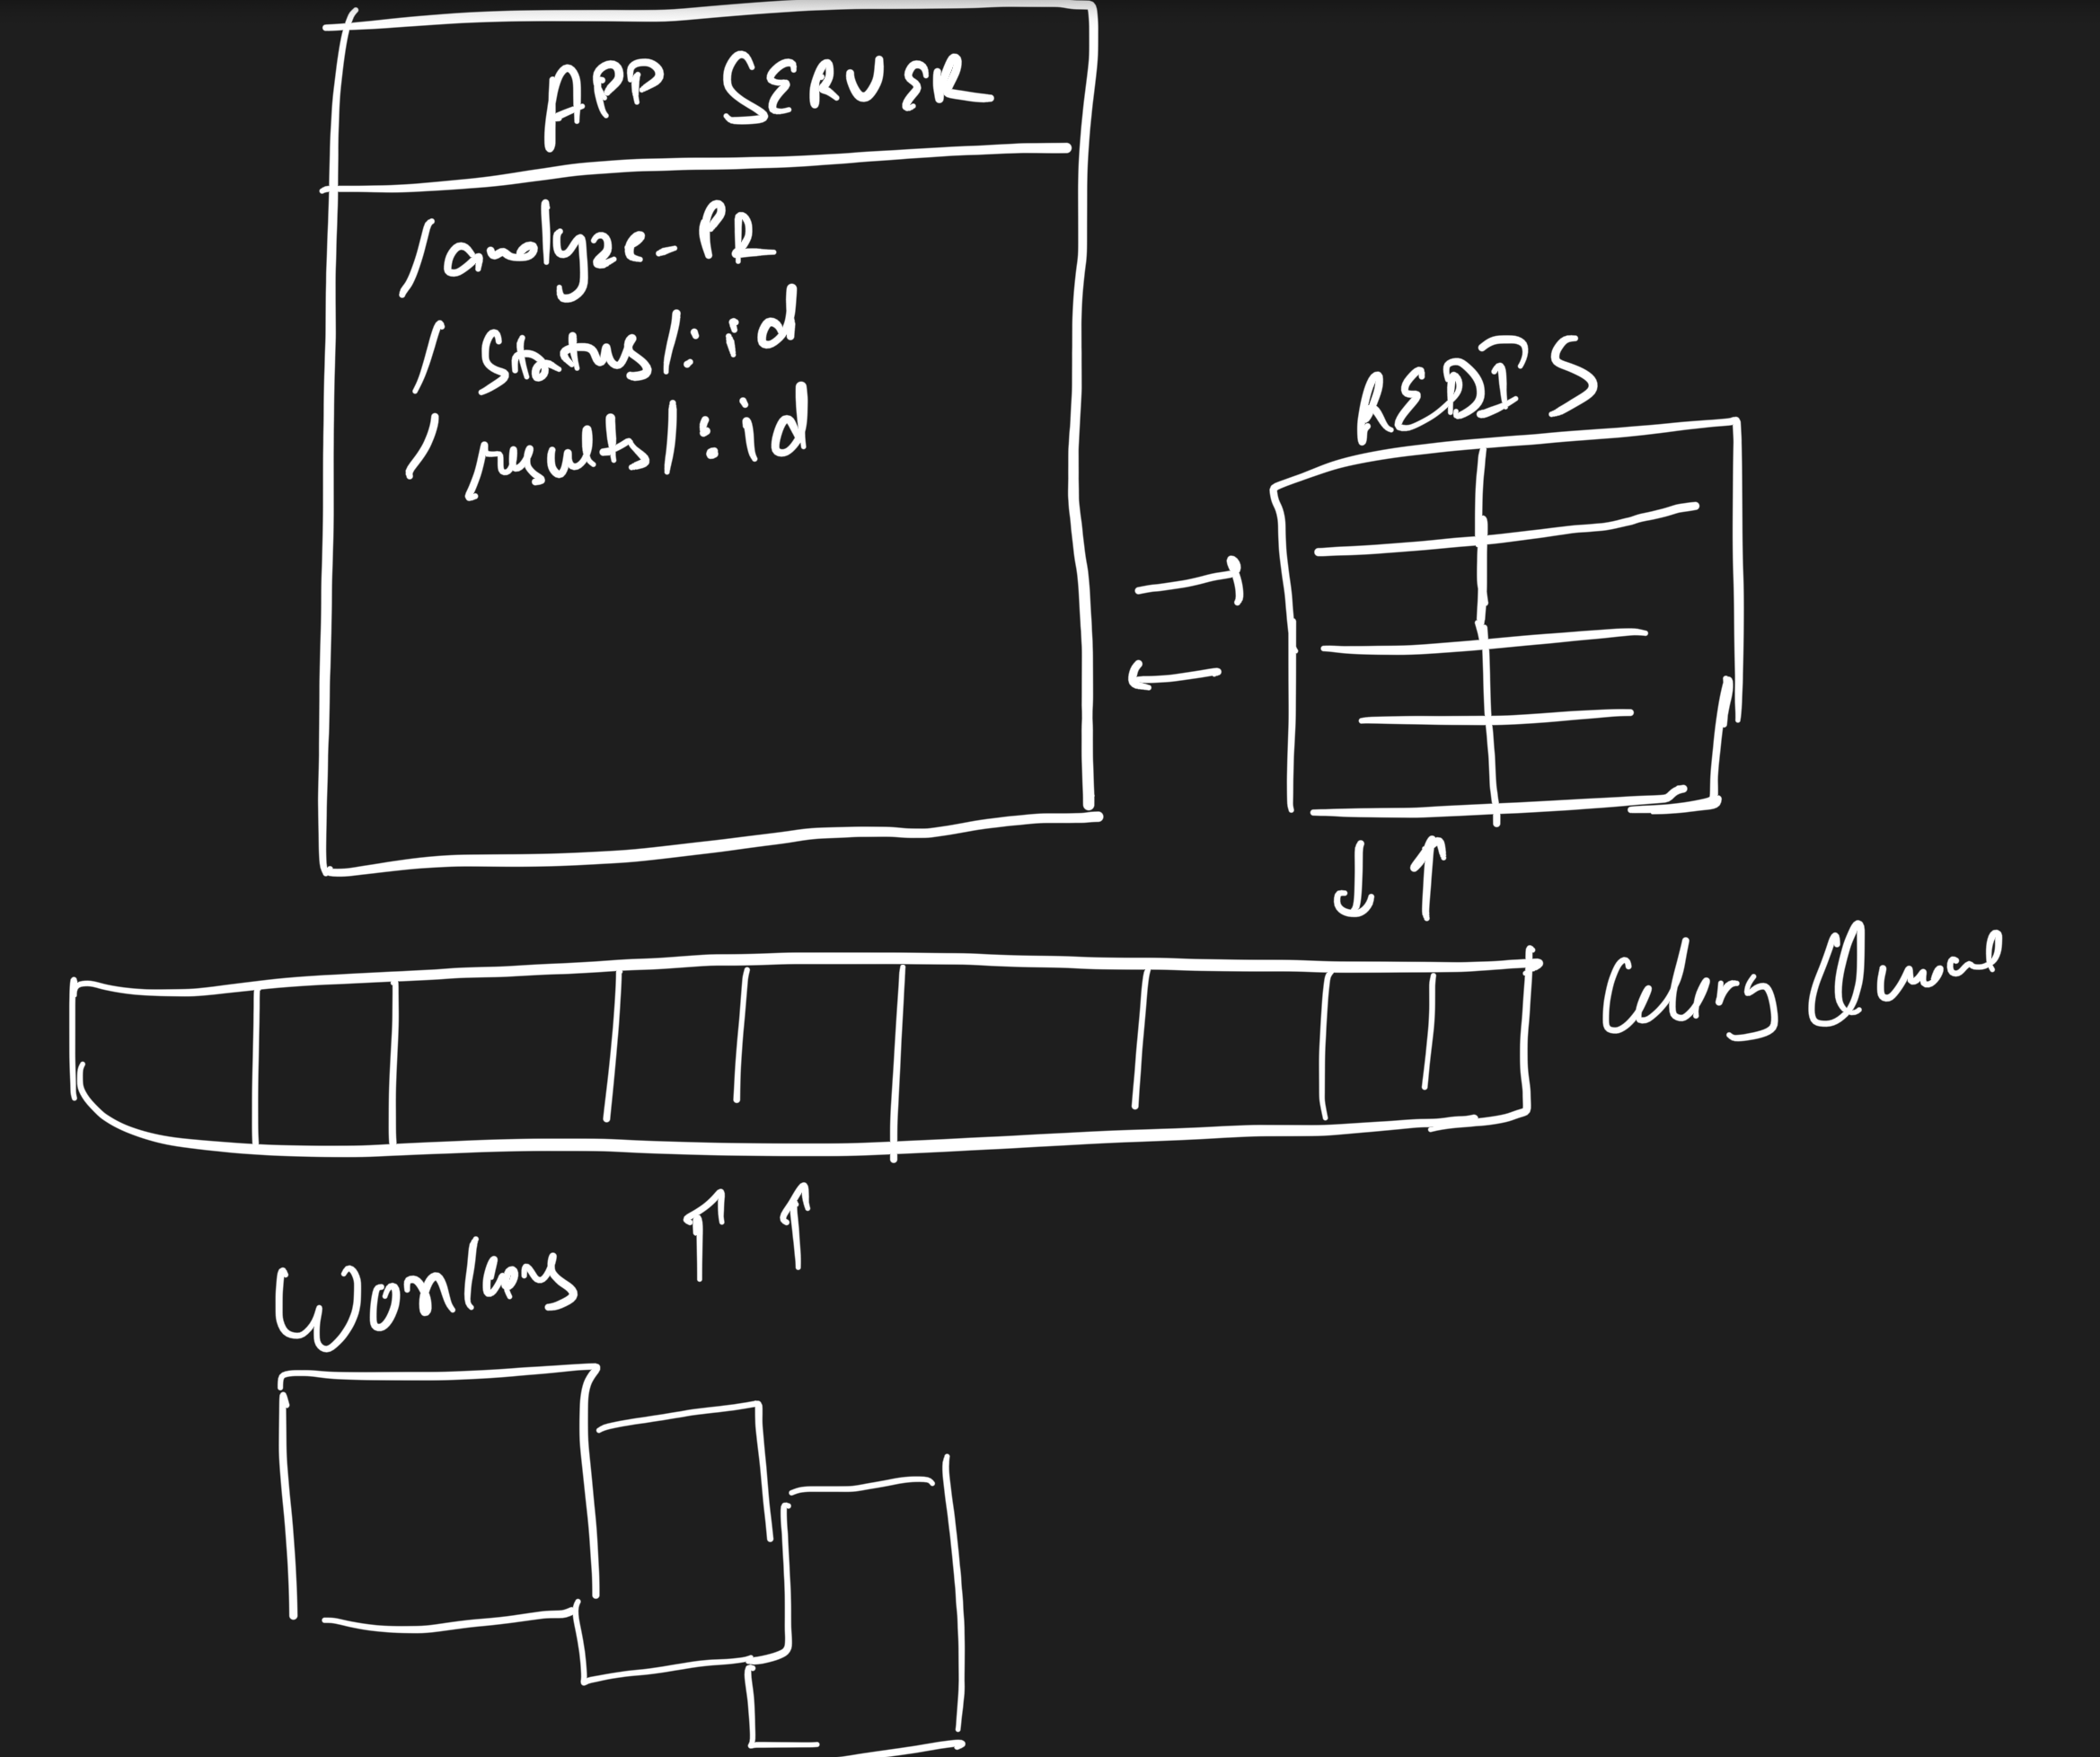 APP SERVER
/analyze-PR
/status/:id
/results/:id
REDIS
Celery Queue
Workers